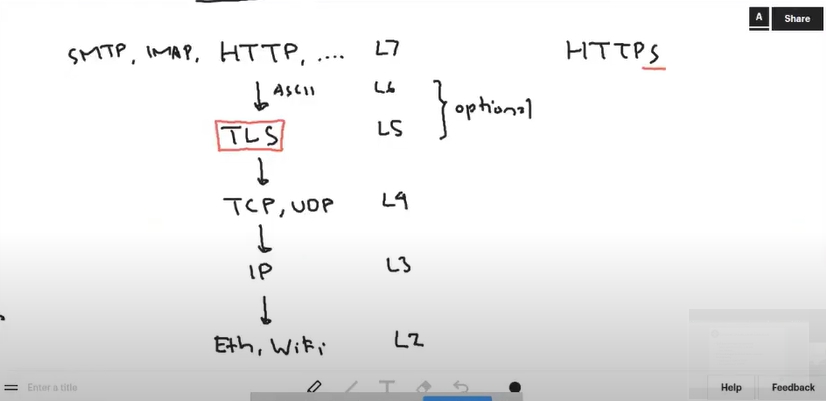 A Share
SMTP, IMAP, HTTP, .... L7 HTTPS
ASCII L6
optional
TLS L5
TCP, UDP L4
IP L3
Eth, WiFi L2
Enter a title T Help Feedback